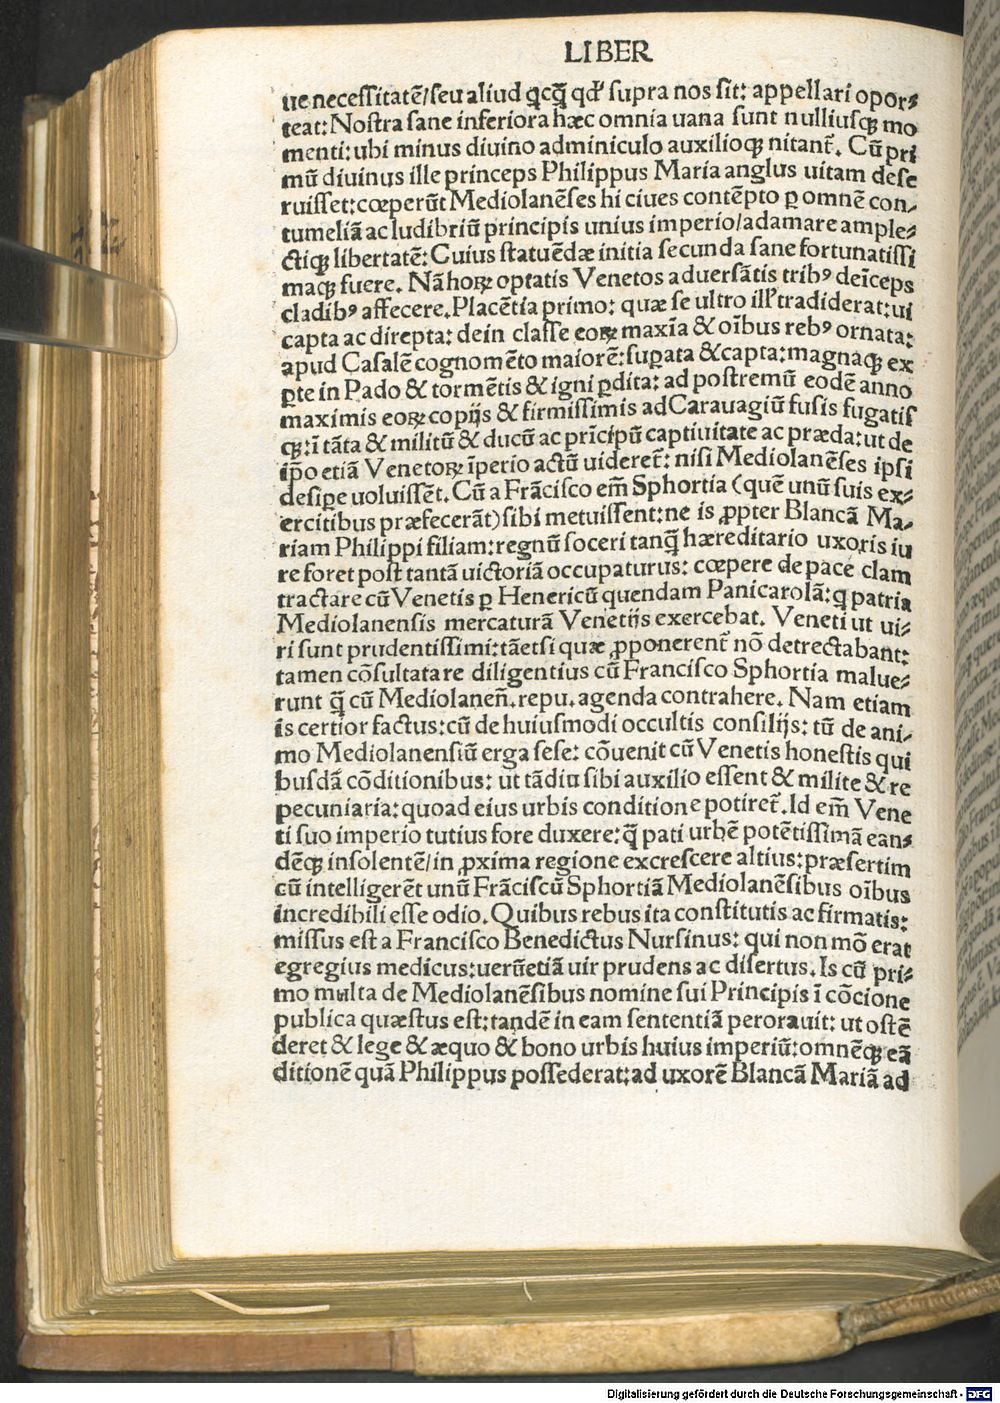 LIBER
ue necessitatē/seu aliud qcq̄ qđ supra nos sit: appellari opor⸗
teat: Nostra sane inferiora hæc omnia uana sunt nulliusqꝫ mo
menti: ubi minus diuino adminiculo auxilioqꝫ nitant̄. Cū pri
mū diuinus ille princeps Philippus Maria anglus uitam dese
ruisset: cœperūt Mediolanēses hi ciues contēpto ꝑ omnē con⸗
tumeliā ac ludibriū principis unius imperio/adamare ample⸗
ctiqꝫ libertatē: Cuius statuēdæ initia secunda sane fortunatissi
maqꝫ fuere. Nā hoꝝ optatis Venetos aduersātis tribꝰ deīceps
cladibꝰ affecere. Placētia primo: quæ se ultro illꝭ tradiderat: ui
capta ac direpta: dein classe eoꝝ maxīa & oībus rebꝰ ornata:
apud Casalē cognomēto maiorē: suꝑata & capta: magnaqꝫ ex
ꝑte in Pado & tormētis & igni ꝑdita: ad postremū eodē anno
maximis eoꝝ copijs & firmissimis ad Carauagiū fusis fugatis
qꝫ: ī tāta & militū & ducū ac prīcipū captiuitate ac præda: ut de
ip̄o etiā Venetoꝝ īperio actū uideret̄: nisi Mediolanēses ipsi
desiꝑe uoluissēt. Cū a Frācisco em̄ Sphortia (quē unū suis ex⸗
ercitibus præfecerāt) sibi metuissent: ne is ꝓpter Blancā Ma⸗
riam Philippi filiam: regnū soceri tanq̄ hæreditario uxoris iu
re foret post tantā uictoriā occupaturus: cœpere de pace clam
tractare cū Venetis ꝑ Henericū quendam Panicarolā: q patria
Mediolanensis mercaturā Venetijs exercebat. Veneti ut ui⸗
ri sunt prudentissimi: tāetsi quæ ꝓponerent̄ nō detrectabant:
tamen cōsultatare diligentius cū Francisco Sphortia malue⸗
runt q̄ cū Mediolaneñ. repu. agenda contrahere. Nam etiam
is certior factus: cū de huiusmodi occultis consilijs: tū de ani⸗
mo Mediolanensiū erga sese: cōuenit cū Venetis honestis qui
busdā cōditionibus: ut tādiu sibi auxilio essent & milite & re
pecuniaria: quoad eius urbis conditione potiret̄. Id em̄ Vene
ti suo imperio tutius fore duxere: q̄ pati urbē potētissimā ean⸗
dēqꝫ insolentē/in ꝓxima regione excrescere altius: præsertim
cū intelligerēt unū Frāciscū Sphortiā Mediolanēsibus oībus
incredibili esse odio. Quibus rebus ita constitutis ac firmatis:
missus est a Francisco Benedictus Nursinus: qui non mō erat
egregius medicus: uerūetiā uir prudens ac disertus. Is cū pri⸗
mo multa de Mediolanēsibus nomine sui Principis ī cōcione
publica quæstus est: tandē in eam sententiā perorauit: ut ostē
deret & lege & æquo & bono urbis huius imperiū: omnēqꝫ eā
ditionē quā Philippus possederat: ad uxorē Blancā Mariā ad
Digitalisierung gefördert durch die Deutsche Forschungsgemeinschaft - DFG